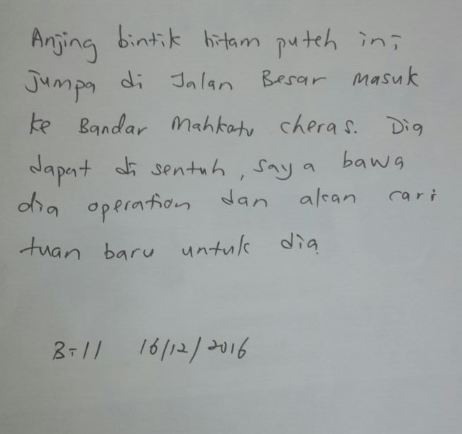 Anjing bintik hitam puteh ini
jumpa di Jalan Besar masuk
ke Bandar Mahkatu cheras. Dia
dapat di sentuh, saya bawa
dia operation dan akan cari
tuan baru untuk dia
B=11 16/12/2016